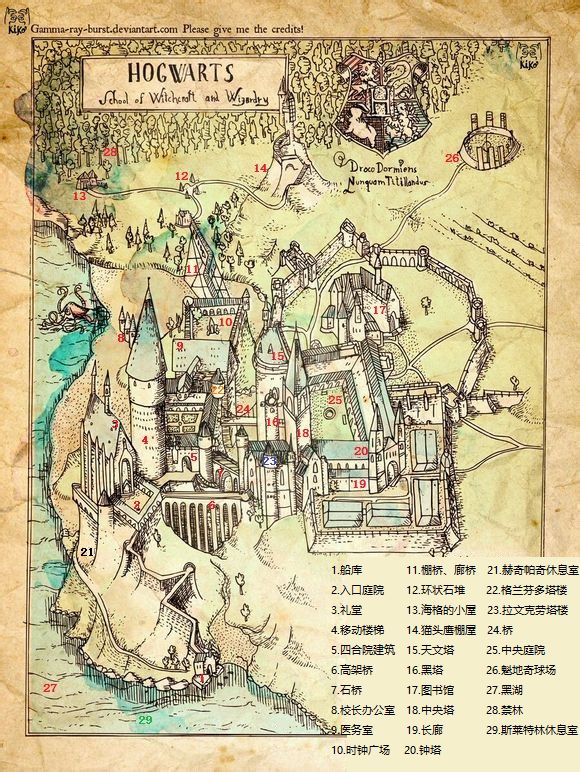 Kiko
Gamma-ray-burst.deviantart.com Please give me the credits!
Kiko
HOGWARTS
School of Witchcraft and Wizardry
Draco Dormiens
Nunquam Titillandus
28
26
14
12
13
11
17
10
8
9
15
22
25
24
3
16
4
18
20
5
23
7
19
2
6
21
1
27
29
1.船库 11.棚桥、廊桥 21.赫奇帕奇休息室
2.入口庭院 12.环状石堆 22.格兰芬多塔楼
3.礼堂 13.海格的小屋 23.拉文克劳塔楼
4.移动楼梯 14.猫头鹰棚屋 24.桥
5.四合院建筑 15.天文塔 25.中央庭院
6.高架桥 16.黑塔 26.魁地奇球场
7.石桥 17.图书馆 27.黑湖
8.校长办公室 18.中央塔 28.禁林
9.医务室 19.长廊 29.斯莱特林休息室
10.时钟广场 20.钟塔